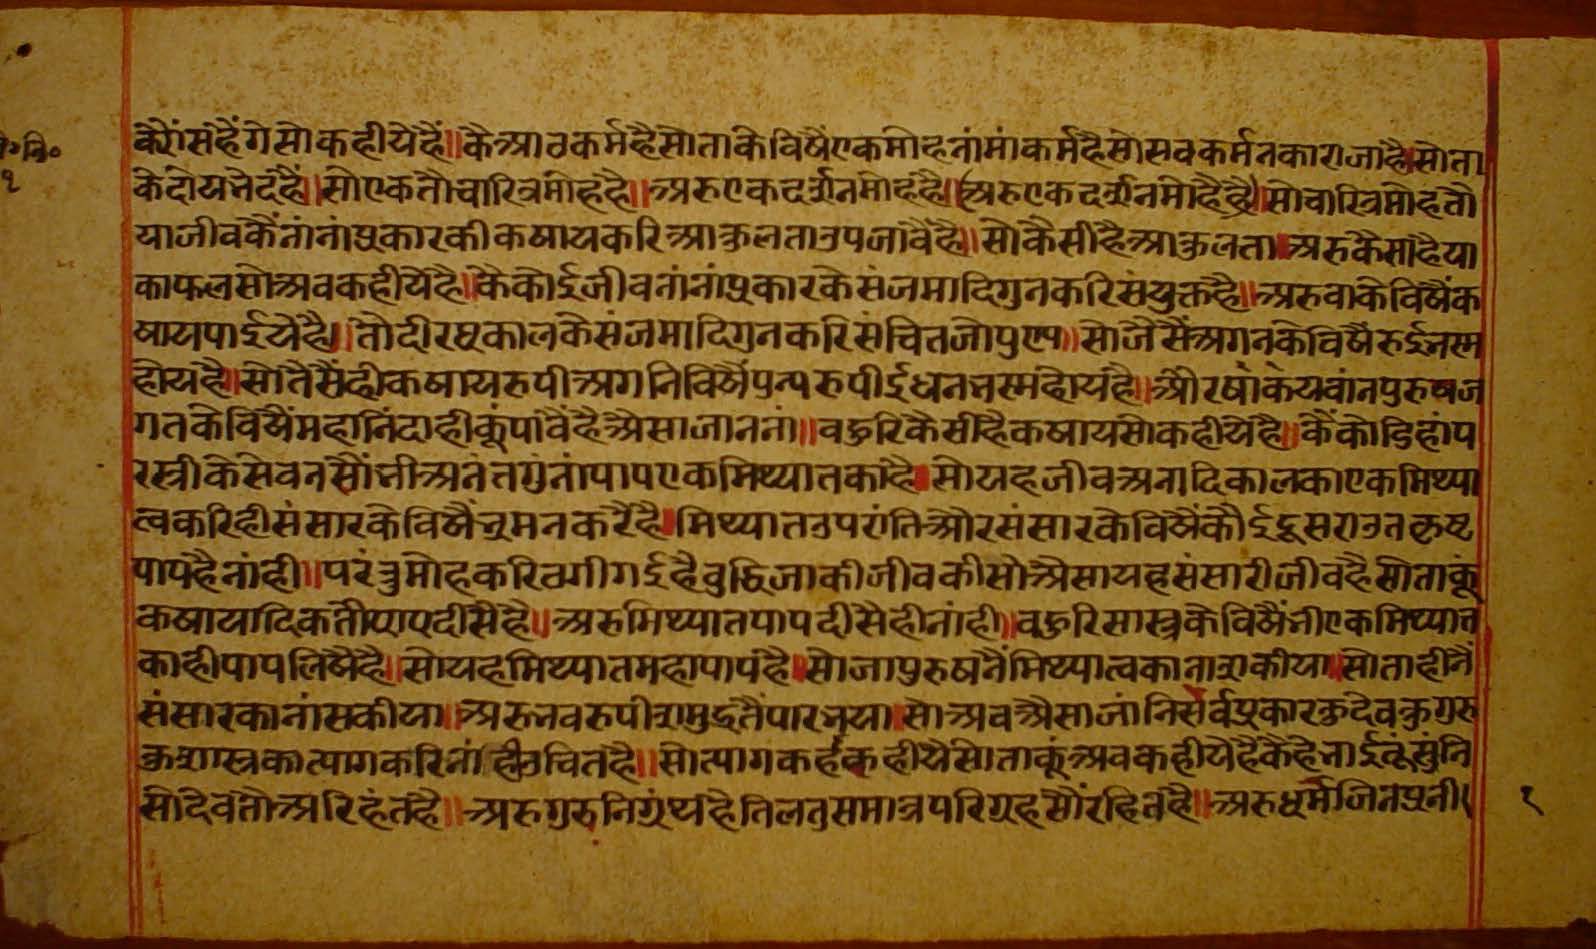 कैसे हैंगे सो कहीये हैं॥ कै आठ कर्म है सो ता के विषैं एक मोह नांमां कर्म है सो सब कर्मन का राजा है॥ सो ता
के दोय भेद हैं॥ सो एक तौ चारित्रमोह है॥ अरु एक दर्शनमोह है॥ अरु एक दर्शनमोह है॥ सो चारित्रमोह तो
या जीव कैं नांनां प्रकार की कषाय करि आकुलता उपजावै है॥ सो कैसी है आकुलता॥ अरु कैसा है या
का फल सो अब कहीये है॥ कै कोई जीव नांनां प्रकार के संजमादि गुन करि संयुक्त है॥ अरु वा के विषैं क
षाय पाईये है॥ तौ दीरघ काल के संजमादि गुन करि संचित जो पुण्य॥ सो जैसैं अगन के विषै रुई भस्म
होय है॥ सो तैसैं ही कषाय रुपी अगनि विषैं पुन्य रुपी ईधन भस्म होय है॥ और कषायवांन पुरुष ज
गत के विषैं महा निंदा ही कूं पावैं है औसा जाननां॥ बहुरि कैसी है कषाय सो कहीये है॥ कैं कोडि हां प
रस्त्री के सेवन सौं भी अनंत गुनां पाप एक मिथ्यात का है॥ सो यह जीव अनादि काल का एक मिथ्या
त्व करि ही संसार के विषैं भ्रमन करै है॥ मिथ्यात उपरांति और संसार के विषैं कोई दूसरा उतकृष्ट
पाप है नांही॥ परंतु मोह करि ठगी गई है बुद्धि जा की जीव की सो औसा यह संसारी जीव है सो ता कूं
कषायादिक तौ पाप दीसै है॥ अरु मिथ्यात पाप दीसै ही नांही॥ बहुरि सास्त्र के विषैं भी एक मिथ्यात
का ही पाप लिषै है॥ सो यह मिथ्यात महा पाप है॥ सो जा पुरुष नैं मिथ्यात्व का नाश कीया॥ सो ता ही नैं
संसार का नांस कीया॥ अरु भव रुपी समुद्र तैं पार भया॥ सो अब औसा जांनि सर्व प्रकार कुदेव कुगुरु
कुशास्त्र का त्याग करिनां ही उचित है॥ सो त्याग कहीयै सो ता कूं अब कहीये है कै है भाई तूं सुंनि
सो देव तौ अरिहंत है॥ अरु गुरु निग्रंथ है तिल तुस मात्र परिग्रह सौं रहित है॥ अरु धर्म जिनप्रनी
१
१